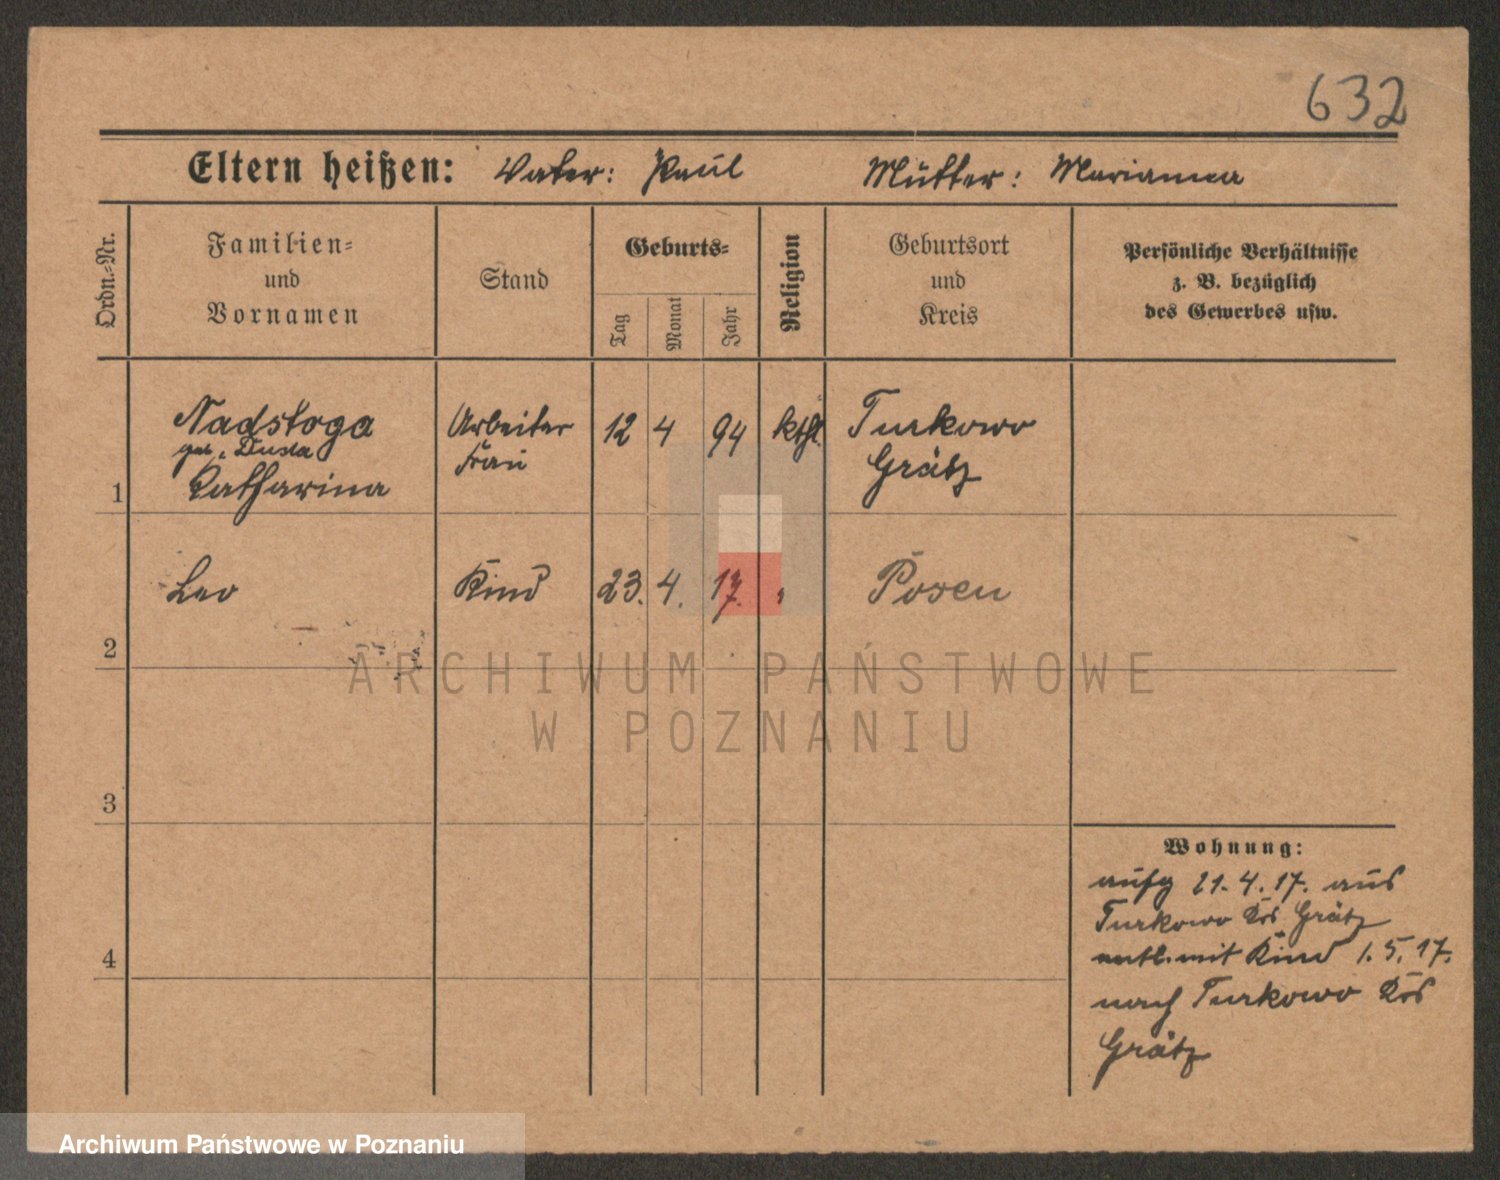 632
Eltern heißen: Vater: Paul Mutter: Marianna
Ordn.-Nr.
Familien-
und
Vornamen
Stand
Geburts-
Tag
Monat
Jahr
Religion
Geburtsort
und
Kreis
Persönliche Verhältnisse
z. B. bezüglich
des Gewerbes usw.
1
Nadstoga
geb. Dusza
Katharina
Arbeiter
Frau
12 4 94 kthl.
Turkowo
Grätz
2
Leo Kind 23. 4. 17. " Posen
3
4
Wohnung:
aufg 21. 4. 17. aus
Turkowo Krs Grätz
entl. mit Kind 1. 5. 17.
nach Turkowo Krs
Grätz
ARCHIWUM PAŃSTWOWE
W POZNANIU
Archiwum Państwowe w Poznaniu